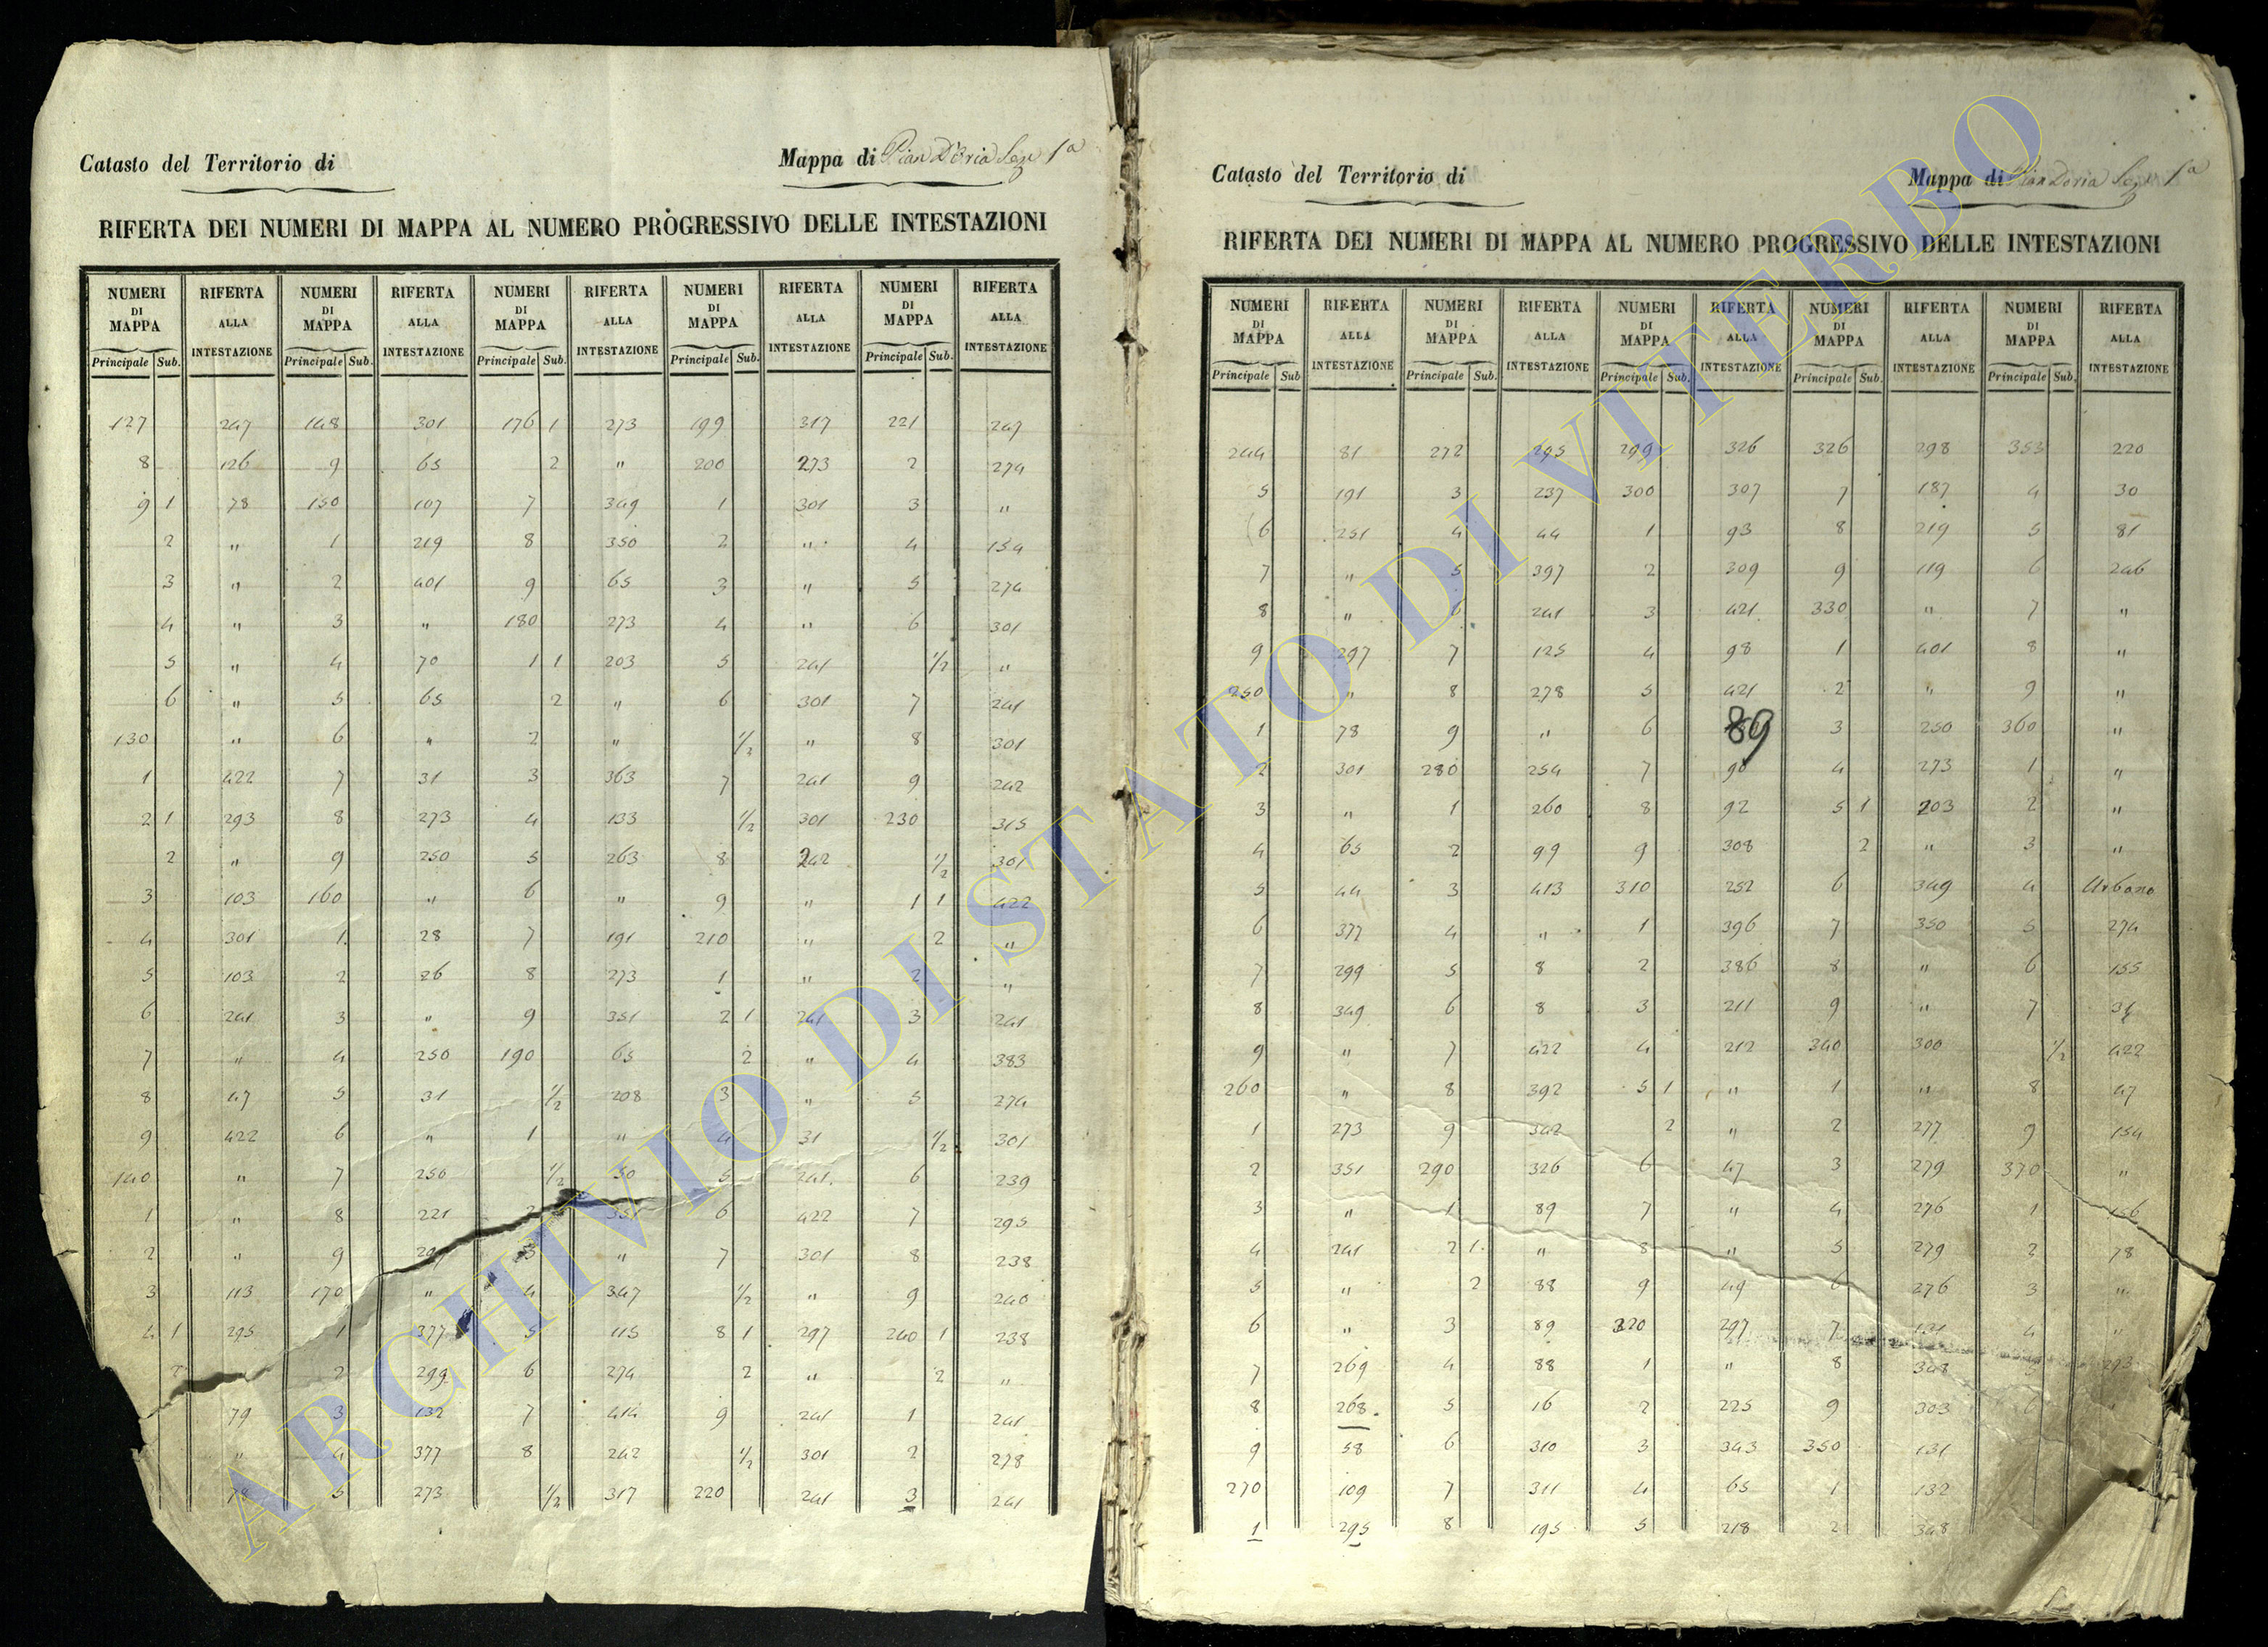 Catasto del Territorio di
Mappa di Pian D'Oria Sez 1ª
RIFERTA DEI NUMERI DI MAPPA AL NUMERO PROGRESSIVO DELLE INTESTAZIONI
NUMERI RIFERTA NUMERI RIFERTA NUMERI RIFERTA NUMERI RIFERTA NUMERI RIFERTA
DI DI DI DI DI
MAPPA ALLA MAPPA ALLA MAPPA ALLA MAPPA ALLA MAPPA ALLA
Principale Sub. INTESTAZIONE Principale Sub. INTESTAZIONE Principale Sub. INTESTAZIONE Principale Sub. INTESTAZIONE Principale Sub. INTESTAZIONE
127 247 148 301 176 1 273 199 317 221 247
8 126 9 65 2 " 200 273 2 274
9 1 78 150 107 7 349 1 301 3 "
2 " 1 219 8 350 2 " 4 154
3 " 2 401 9 65 3 " 5 274
4 " 3 " 180 273 4 " 6 301
5 " 4 70 1 1 203 5 241 1/2 "
6 " 5 65 2 " 6 301 7 241
130 " 6 " 2 " 1/2 " 8 301
1 422 7 31 3 363 7 241 9 242
2 1 293 8 273 4 133 1/2 301 230 315
2 " 9 250 5 263 8 242 1/2 301
3 103 160 " 6 " 9 " 1 1 422
4 301 1 28 7 191 210 " 2 "
5 103 2 26 8 273 1 " 2 "
6 241 3 " 9 351 2 1 241 3 241
7 " 4 250 190 65 2 " 4 383
8 47 5 31 1/2 208 3 " 5 274
9 422 6 " 1 " 4 31 1/2 301
140 " 7 250 1/2 50 5 241 6 239
1 " 8 221 2 351 6 422 7 295
2 " 9 3 " 7 301 8 238
3 113 170 " 4 347 1/2 " 9 240
4 1 295 1 377 5 115 8 1 297 240 1 238
2 2 299 6 274 2 " 2 "
79 3 132 7 414 9 241 1 241
" 4 377 8 242 1/2 301 2 278
78 5 273 1/2 317 220 241 3 241
Catasto del Territorio di
Mappa di Pian Doria Sez 1ª
RIFERTA DEI NUMERI DI MAPPA AL NUMERO PROGRESSIVO DELLE INTESTAZIONI
NUMERI RIFERTA NUMERI RIFERTA NUMERI RIFERTA NUMERI RIFERTA NUMERI RIFERTA
DI DI DI DI DI
MAPPA ALLA MAPPA ALLA MAPPA ALLA MAPPA ALLA MAPPA ALLA
Principale Sub INTESTAZIONE Principale Sub. INTESTAZIONE Principale Sub. INTESTAZIONE Principale Sub. INTESTAZIONE Principale Sub. INTESTAZIONE
244 81 272 295 299 326 326 298 353 220
5 191 3 237 300 307 7 187 4 30
6 251 4 44 1 93 8 219 5 81
7 " 5 397 2 309 9 119 6 246
8 " 6 241 3 421 330 " 7 "
9 297 7 125 4 98 1 401 8 "
250 " 8 278 5 421 2 " 9 "
1 78 9 " 6 89 3 250 360 "
2 301 280 254 7 90 4 273 1 "
3 " 1 260 8 92 5 1 203 2 "
4 65 2 99 9 308 2 " 3 "
5 44 3 413 310 252 6 349 4 Urbano
6 377 4 " 1 396 7 350 5 274
7 299 5 8 2 386 8 " 6 155
8 349 6 8 3 211 9 " 7 31
9 " 7 422 4 212 340 300 1/2 422
260 " 8 392 5 1 " 1 " 8 47
1 273 9 342 2 " 2 277 9 154
2 351 290 326 6 47 3 279 370 "
3 " 1 89 7 " 4 276 1 156
4 241 2 1 " 8 " 5 279 2 78
5 " 2 88 9 49 6 276 3 "
6 " 3 89 320 297 7 131 4 "
7 269 4 88 1 " 8 348 293
8 268 5 16 2 225 9 303 6
9 58 6 310 3 343 350 131
270 109 7 311 4 65 1 132
1 295 8 195 5 218 2 348
ARCHIVIO DI STATO DI VITERBO